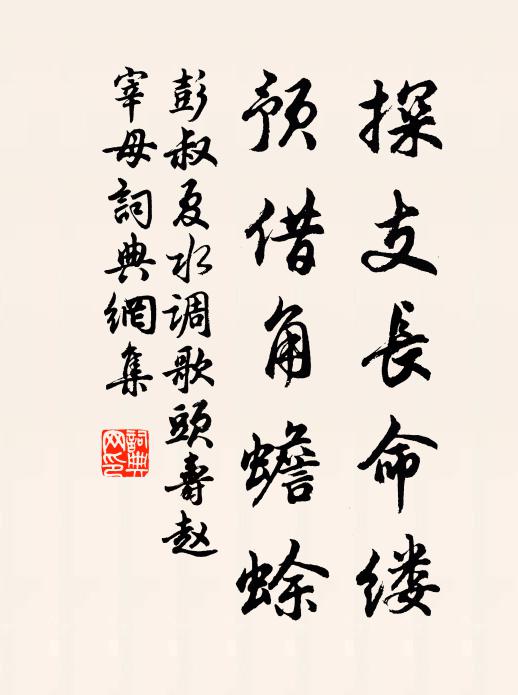 探支長命缕
预借角蟾蜍
彭叔夏水调歌頭壽赵
宰母詞典網集
詞典
网印